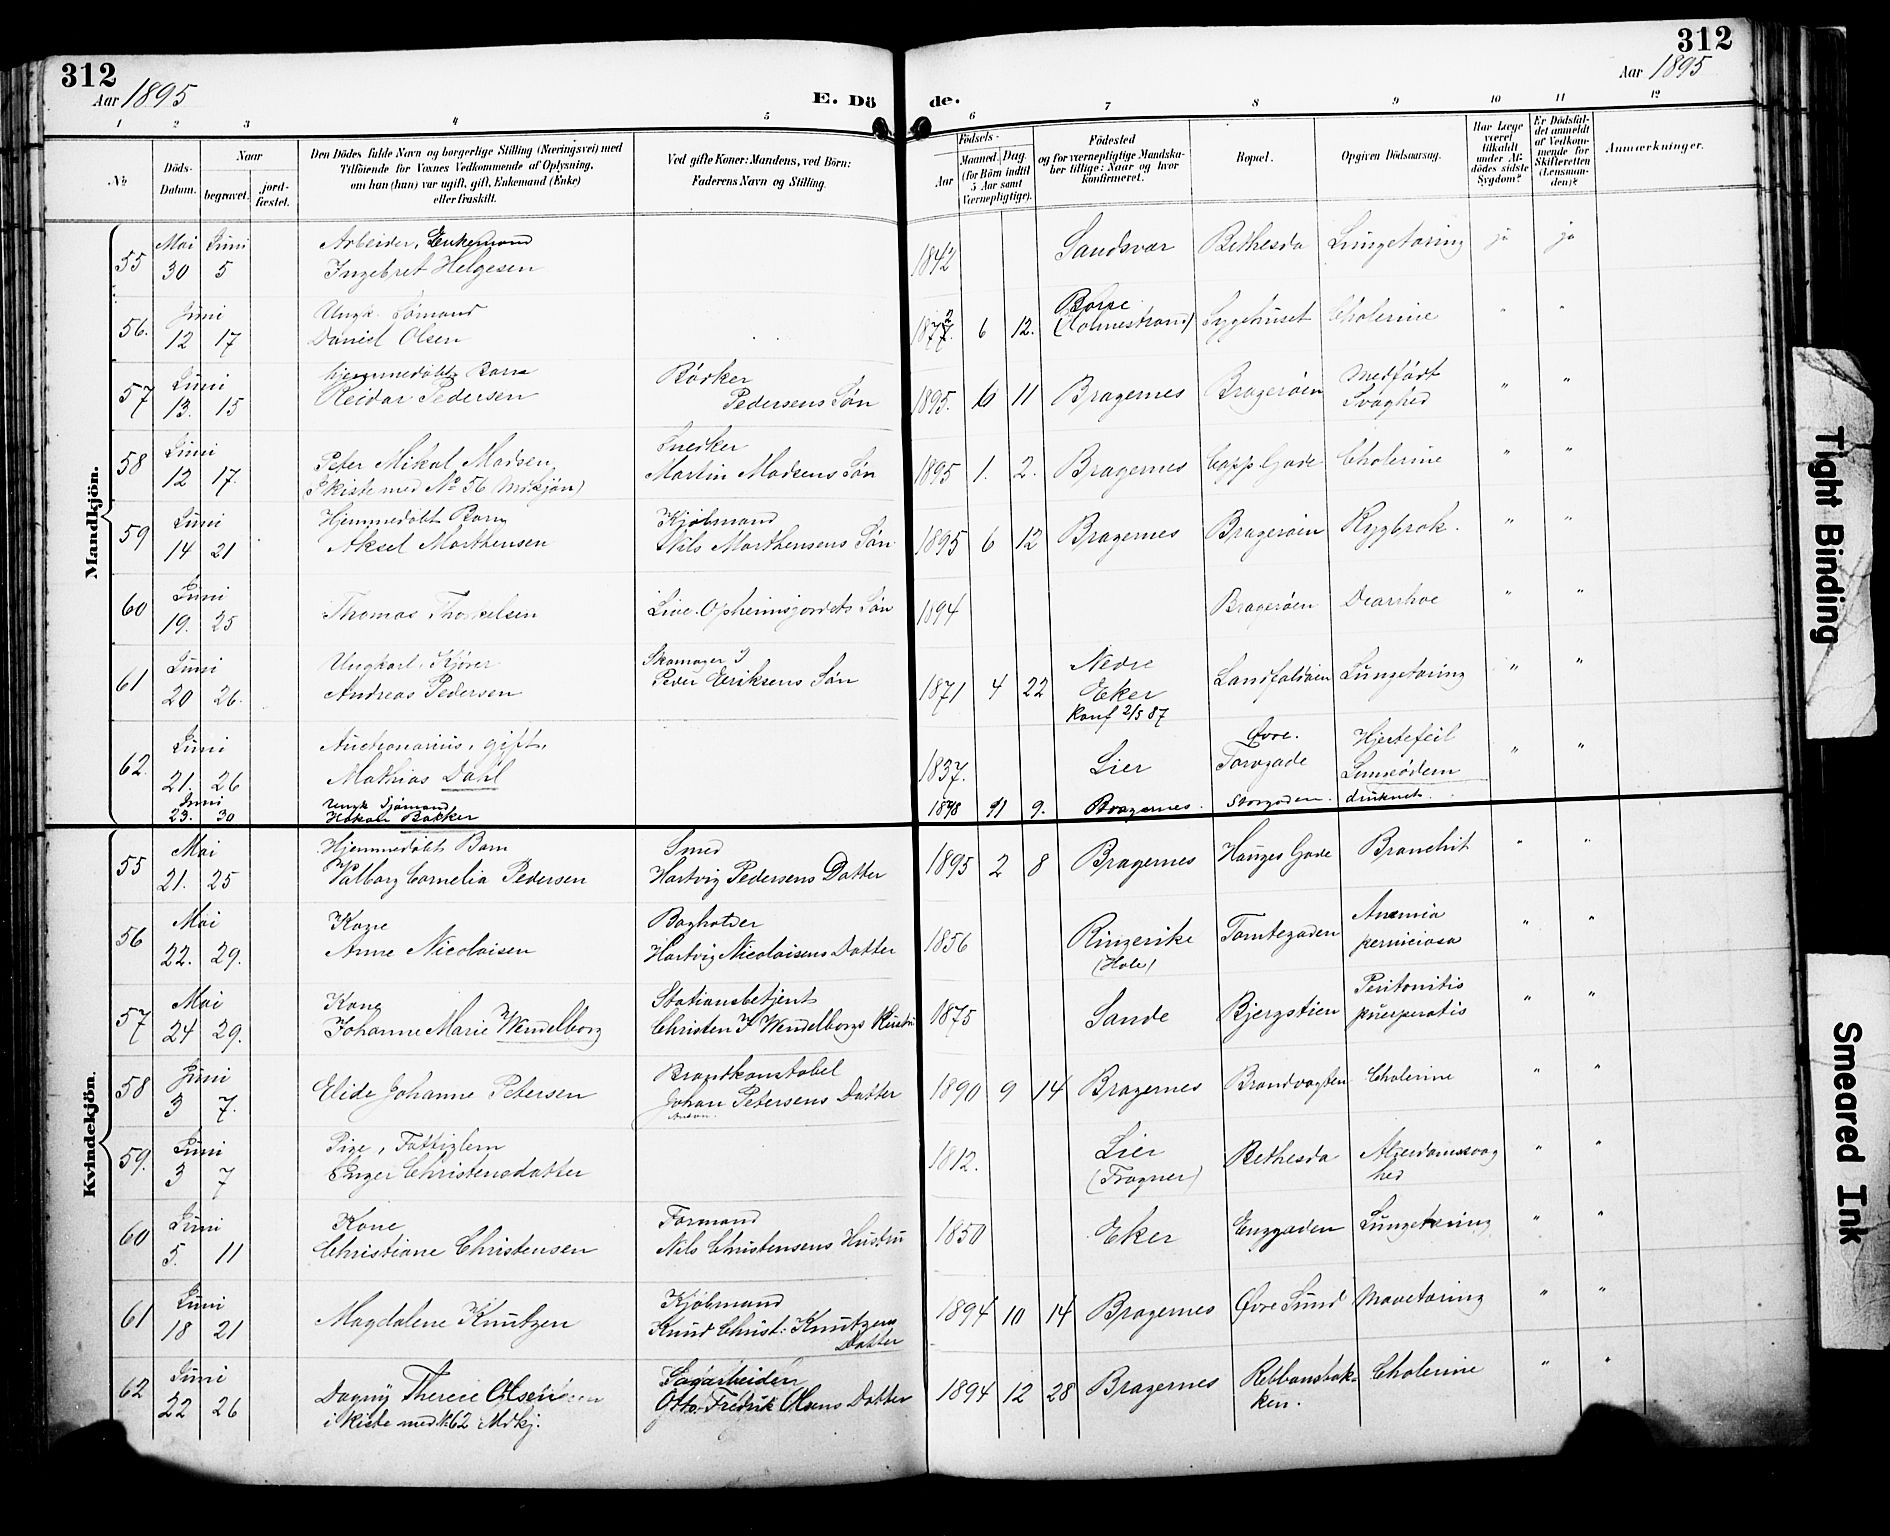 312
Aar 1895
E. Dö
de.
312
Aar 1895
1 2 3 4 5 6 7 8 9 10 11 12
No
Döds-
Datum.
Naar
begravet.
jord-
fæstet.
Den Dödes fulde Navn og borgerlige Stilling (Næringsvei) med
Tilföiende för Voxnes Vedkommende af Oplysning,
om han (hun) var ugift, gift, Enkemand (Enke)
eller fraskilt.
Ved gifte Koner: Mandens, ved Börn:
Faderens Navn og Stilling.
Födsels-
Aar
Maaned. Dag.
(for Börn indtil
5 Aar samt
Værnepligtige).
Födested
og for værnepligtige Mandska-
ber tillige: Naar og hvor
konfirmeret.
Bopæl.
Opgiven Dödsaarsag.
Har Læge
været
tilkaldt
under Af-
dödes sidste
Sygdom?
Er Dödsfal-
det anmeldt
af Vedkom-
mende for
Skifteretten
(Lensman-
den)?
Anmærkninger.
Mandkjön.
55 Mai 30 Juni 5 Arbeider, Enkemand
Ingebret Helgesen 1842 Sandsvær Bethesda Lungetæring ja ja
56. Juni 12 17 Ungk. Sømand
Daniel Olsen 1872 6 12. Borre
(Holmestrand) Sygehuset Cholerine " "
57 Juni 13. 15 hjemmedøbt Barn
Reidar Pedersen Bødker
Pedersens Søn 1895. 6 11 Bragernes Bragerøen Medfødt
Svaghed " "
58 Juni 12 17. Peter Mikal Madsen
(I kiste med No 56 M.kjøn) Snedker
Martin Madsens Søn 1895 1. 2. Bragernes Capp. Gade Cholerine " "
59 Juni 14 21 Hjemmedøbt Barn
Aksel Marthensen Kjøbmand
Nils Marthensens Søn 1895 6 12 Bragernes Bragerøen Rygbrok. " "
60 Juni 19. 25 Thomas Thorkelsen Live Opheimsjordets Søn 1894 Bragerøen Diarrhoe " "
61 Juni 20 26. Ungkarl, Kjører
Andreas Pedersen Skomager
Peder Eriksens Søn 1871 4 22 Nedre
Eker
Konf 2/5 87 Landfaldøen Lungetæring " "
62. Juni 21. 26 Auctionarius, gift,
Mathias Dahl 1837. Lier Øvre.
Torvgade Hjertefeil
Lungeødem " "
Juni 23. 30 Ungk Sjømand
Håkon Backer 1878 11 9. Bragernes. Storgaden. druknet.
Kvindekjön.
55 Mai 21. 25 Hjemmedøbt Barn
Valborg Cornelia Pedersen Smed
Hartvig Pedersens Datter 1895 2 8 Bragernes Hauges Gade Bronchit " "
56 Mai 22. 29. Kone
Anne Nicolaisen Bagholder
Hartvig Nicolaisens Datter 1856 Ringerike
(Hole) Tomtegaden Anæmia
perniciosa " "
57 Mai 24 29. Kone
Johanne Marie Wendelborg Stationsbetjent
Christen J Wendelborgs Hustru 1875 Sande Bjergstien Peritonitis
puerperalis " "
58 Juni 3 7. Elide Johanne Petersen Brandkonstabel
Johan Petersens Datter
Anton. 1890 9 14 Bragernes Brandvagten Cholerine " "
59. Juni 3 7 Pige, Fattiglem
Inger Christensdatter 1812. Lier
(Frogner) Bethesda Alderdomssvag
hed " "
60 Juni 5. 11 Kone
Christiane Christensen Formand
Nils Christensens Hustru 1850 Eker Enggaden Lungetæring " "
61 Juni 18 21 Magdalene Knutzen Kjøbmand
Knud Christ: Knutzens
Datter 1894 10 14 Bragernes Øvre Sund Mavetæring " "
62 Juni 22 26 Dagny Therese Olsen
i kiste med No 62 Mdkj. Sagarbeider
Otto Fredrik Olsens Datter 1894 12 28 Bragernes Rebbansbak-
ken. Cholerine " "
Tight Binding
Smeared Ink